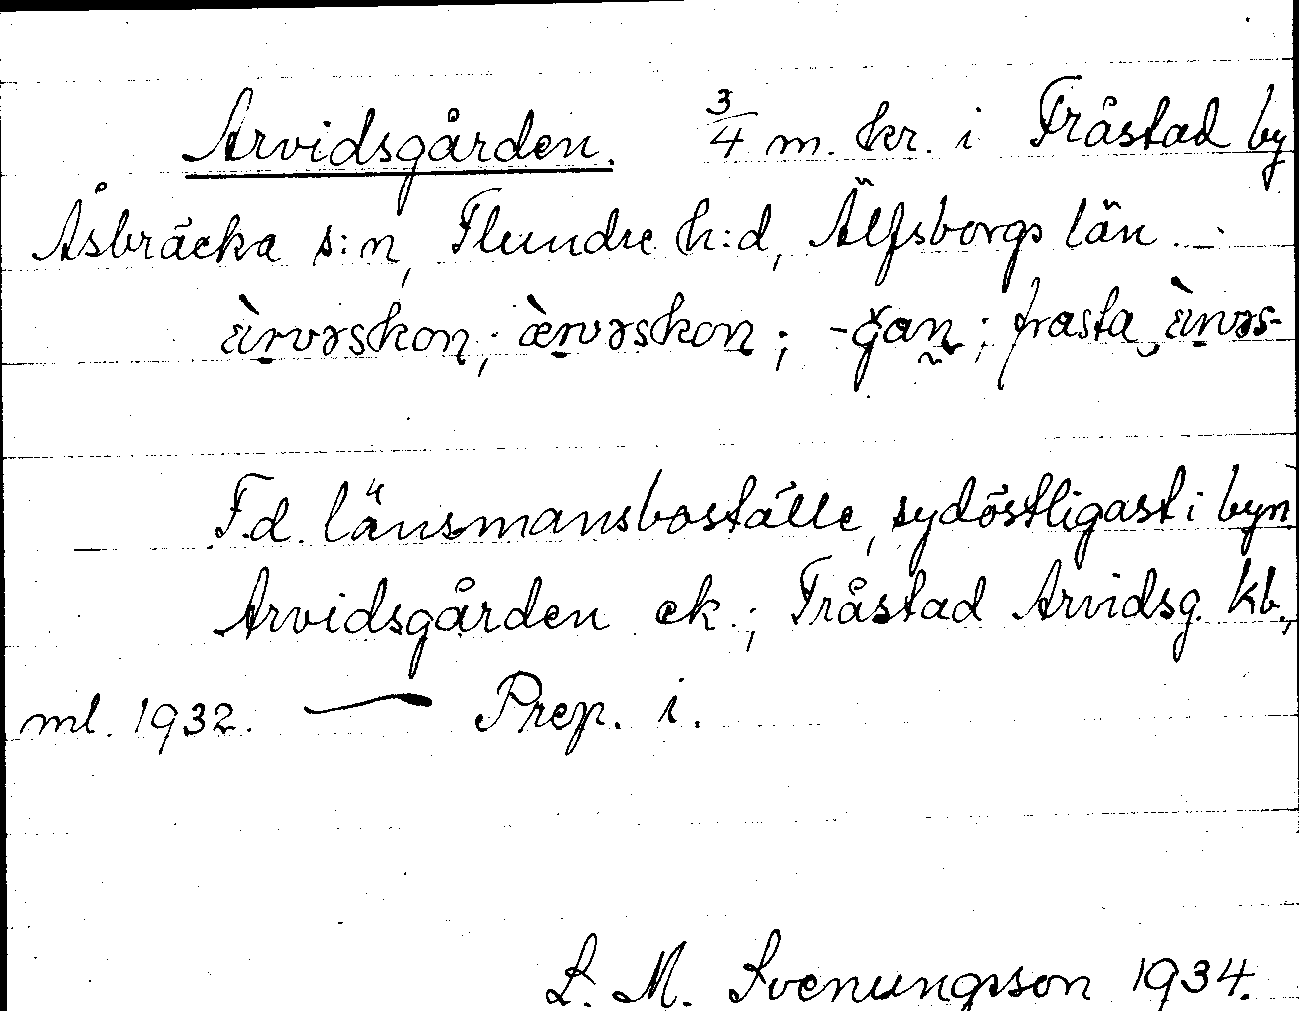 Arvidsgården. 3/4 m. kr. i Fråstad by
Åsbräcka s:n, Flundre h:d, Älfsborgs län. –
àrvəskon; æ̀rvəskon; -gan; frasta àrvəs-
F.d. länsmansboställe, sydöstligast i byn
Arvidsgården ek.; Fråstad Arvidsg. kb.,
ml. 1932. — Prep. i.
L. M. Svenungsson 1934.